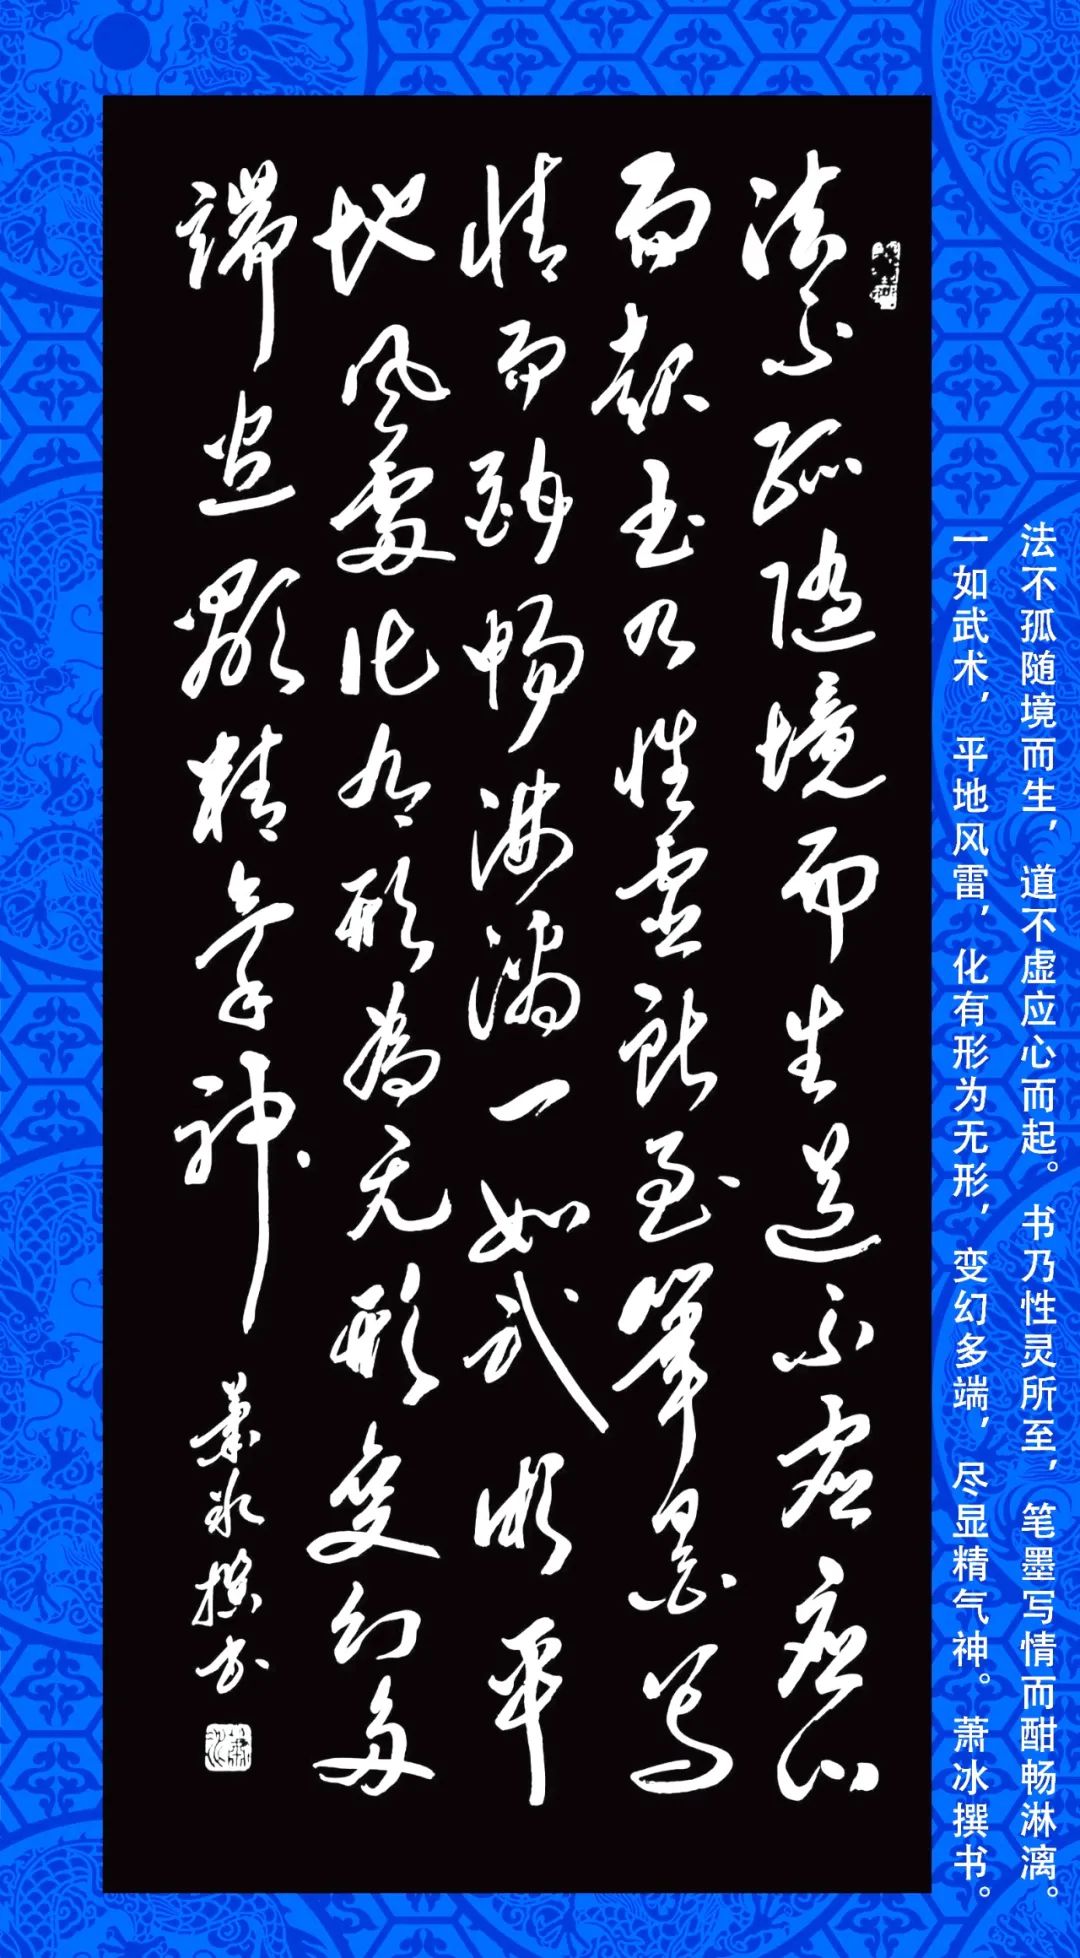 法不孤随境而生，道不虚应心而起。书乃性灵所至，笔墨写情而酣畅淋漓。
一如武术，平地风雷，化有形为无形，变幻多端，尽显精气神。萧冰撰书。
法不孤随境而生道不虚应心
而起书乃性灵所至笔墨写
情而酣畅淋漓一如武术平
地风雷化有形為无形变幻多
端尽显精气神
萧冰撰书